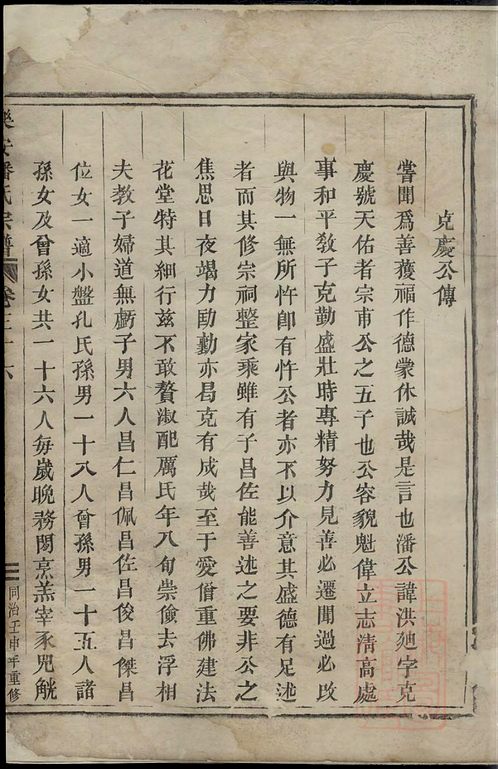 克慶公傳
嘗聞爲善獲福作德蒙休誠哉是言也潘公諱洪廸字克
慶號天佑者宗甫公之五子也公容貌魁偉立志清高處
事和平敎子克勤盛壯時專精努力見善必遷聞過必改
與物一無所忤卽有忤公者亦不以介意其盛德有足述
者而其修宗祠整家乘雖有子昌佐能善述之要非公之
焦思日夜竭力助勷亦曷克有成哉至于愛僧重佛建法
花堂特其細行茲不敢贅淑配厲氏年八旬崇儉去浮相
夫敎子婦道無虧子男六人昌仁昌佩昌佐昌俊昌傑昌
位女一適小盤孔氏孫男一十八人曾孫男一十五人諸
孫女及曾孫女共一十六人每歲晚務閑烹羔宰豕兕觥
樂安潘氏宗譜
卷三十六
同治壬申年重修